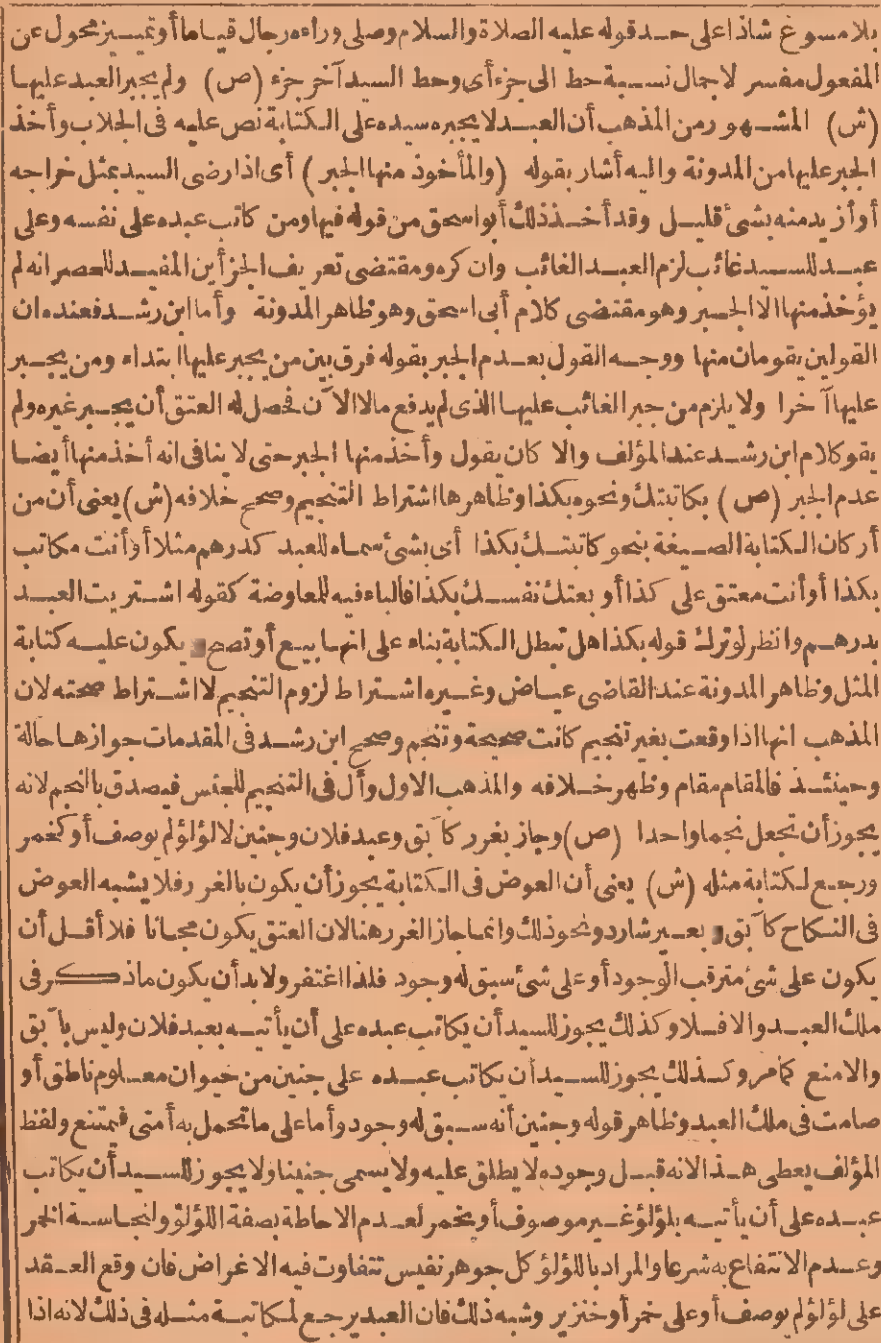 بلا مسوغ شاذا على حد قوله عليه الصلاة والسلام وصلى وراءه رجال قياما أو تمييز محول عن
المفعول مفسر لاجمال نسبة حط الى جزء أى وحط السيد آخر جزء (ص) ولم يجبر العبد عليها
(ش) المشهور من المذهب أن العبد لا يجبره سيده على الكتابة نص عليه فى الجلاب وأخذ
الجبر عليها من المدونة واليه أشار بقوله (والمأخوذ منها الجبر) أى اذا رضى السيد بمثل خراجه
أو أزيد منه بشئ قليل وقد أخذ ذلك أبو اسحق من قوله فيها ومن كاتب عبده على نفسه وعلى
عبد للسيد غائب لزم العبد الغائب وان كره ومقتضى تعريف الجزأين المفيد للحصر انه لم
يؤخذ منها الا الجبر وهو مقتضى كلام أبى اسحق وهو ظاهر المدونة وأما ابن رشد فعنده ان
القولين يقومان منها ووجه القول بعدم الجبر بقوله فرق بين من يجبر عليها ابتداء ومن يجبر
عليها آخرا ولا يلزم من جبر الغائب عليها الذى لم يدفع مالا الآن فحصل له العتق أن يجبر غيره ولم
يقو كلام ابن رشد عند المؤلف والا كان يقول وأخذ منها الجبر حتى لا ينافى انه أخذ منها أيضا
عدم الجبر (ص) بكاتبتك ونحوه بكذا وظاهرها اشتراط التنجيم وصحح خلافه (ش) يعنى أن من
أركان الكتابة الصيغة بنحو كاتبتك بكذا أى بشئ سماه للعبد كدرهم مثلا أو أنت مكاتب
بكذا أو أنت معتق على كذا أو بعتك نفسك بكذا فالباء فيه للمعاوضة كقوله اشتريت العبد
بدرهم وانظر لو ترك قوله بكذا هل تبطل الكتابة بناء على انها بيع أو تصح و يكون عليه كتابة
المثل وظاهر المدونة عند القاضى عياض وغيره اشتراط لزوم التنجيم لا اشتراط صحته لان
المذهب انها اذا وقعت بغير تنجيم كانت صحيحة وتنجم وصحح ابن رشد فى المقدمات جوازها حالة
وحينئذ فالمقام مقام وظهر خلافه والمذهب الاول وأل فى التنجيم للجنس فيصدق بالنجم لانه
يجوز أن تجعل نجما واحدا (ص) وجاز بغرر كآبق وعبد فلان وجنين لا لؤلؤ لم يوصف أو كخمر
ورجع لكتابة مثله (ش) يعنى أن العوض فى الكتابة يجوز أن يكون بالغرر فلا يشبه العوض
فى النكاح كآبق و بعير شارد ونحو ذلك وانما جاز الغرر هنا لان العتق يكون مجانا فلا أقل أن
يكون على شئ مترقب الوجود أو على شئ سبق له وجود فلذا اغتفر ولا بد أن يكون ما ذكر فى
ملك العبد والا فلا وكذلك يجوز للسيد أن يكاتب عبده على أن يأتيه بعبد فلان وليس بآبق
والا منع كما مر وكذلك يجوز للسيد أن يكاتب عبده على جنين من حيوان معلوم ناطق أو
صامت فى ملك العبد وظاهر قوله وجنين أنه سبق له وجود وأما على ما تحمل به أمتى فيمتنع ولفظ
المؤلف يعطى هذا لانه قبل وجوده لا يطلق عليه ولا يسمى جنينا ولا يجوز للسيد أن يكاتب
عبده على أن يأتيه بلؤلؤ غير موصوف أو بخمر لعدم الاحاطة بصفة اللؤلؤ ولنجاسة الخمر
وعدم الانتفاع به شرعا والمراد باللؤلؤ كل جوهر نفيس تتفاوت فيه الاغراض فان وقع العقد
على لؤلؤ لم يوصف أو على خمر أو خنزير وشبه ذلك فان العبد يرجع لمكاتبة مثله فى ذلك لانه اذا